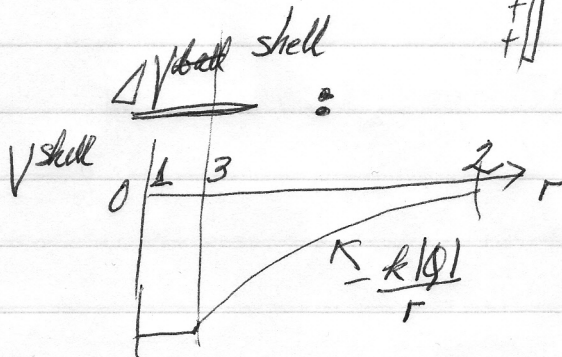 +
+
ΔV shell :
V shell
0 1 3 2 r
- k|Q|
r